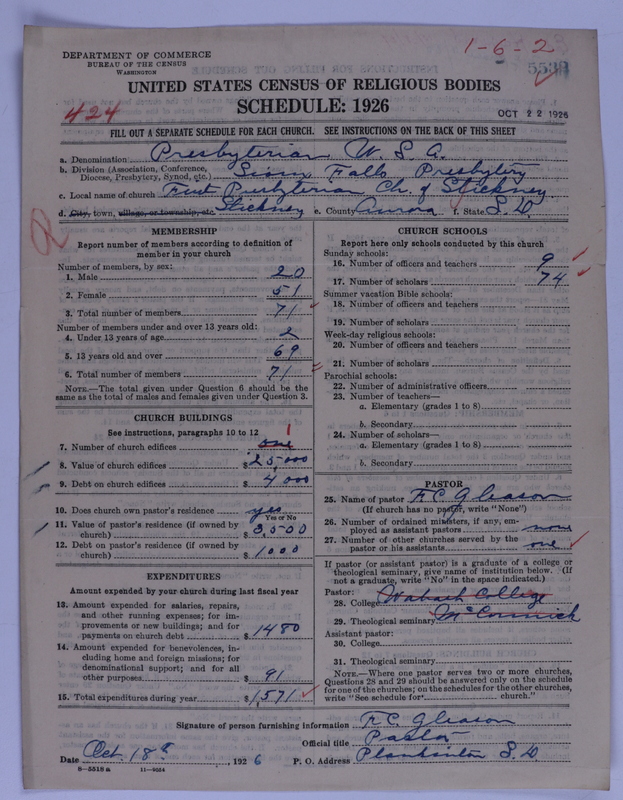 1-6-2
DEPARTMENT OF COMMERCE
BUREAU OF THE CENSUS
WASHINGTON
5538
UNITED STATES CENSUS OF RELIGIOUS BODIES
SCHEDULE: 1926
424
OCT 22 1926
FILL OUT A SEPARATE SCHEDULE FOR EACH CHURCH. SEE INSTRUCTIONS ON THE BACK OF THIS SHEET
a. Denomination Presbyterian U. S. A.
b. Division (Association, Conference, Diocese, Presbytery, Synod, etc.) Sioux Falls Presbytery
c. Local name of church First Presbyterian Ch. of Stickney
d. City, town, village, or township, etc. Stickney e. County Aurora f. State S. D.
MEMBERSHIP
Report number of members according to definition of
member in your church
Number of members, by sex:
1. Male 20
2. Female 51
3. Total number of members 71
Number of members under and over 13 years old:
4. Under 13 years of age 2
5. 13 years old and over 69
6. Total number of members 71
NOTE.—The total given under Question 6 should be
same as the total of males and females given under Question 3.
CHURCH BUILDINGS
See instructions, paragraphs 10 to 12
7. Number of church edifices one 1
8. Value of church edifices $25,000
9. Debt on church edifices $4,000
10. Does church own pastor's residence yes
Yes or No
11. Value of pastor's residence (if owned by
church) $3,500
12. Debt on pastor's residence (if owned by
church) $1000
EXPENDITURES
Amount expended by your church during last fiscal year
13. Amount expended for salaries, repairs,
and other running expenses; for im-
provements or new buildings; and for
payments on church debt $1480
14. Amount expended for benevolences, in-
cluding home and foreign missions; for
denominational support; and for all
other purposes $91
15. Total expenditures during year $1,571
CHURCH SCHOOLS
Report here only schools conducted by this church
Sunday schools:
16. Number of officers and teachers 9
17. Number of scholars 74
Summer vacation Bible schools:
18. Number of officers and teachers
19. Number of scholars
Week-day religious schools:
20. Number of officers and teachers
21. Number of scholars
Parochial schools:
22. Number of administrative officers
23. Number of teachers—
a. Elementary (grades 1 to 8)
b. Secondary
24. Number of scholars—
a. Elementary (grades 1 to 8)
b. Secondary
PASTOR
25. Name of pastor F. C. Gleason
(If church has no pastor, write "None")
26. Number of ordained ministers, if any, em-
ployed as assistant pastors none
27. Number of other churches served by the
pastor or his assistants one
If pastor (or assistant pastor) is a graduate of a college or
theological seminary, give name of institution below. (If
not a graduate, write "No" in the space indicated.)
Pastor:
28. College Wabash College
29. Theological seminary McCormick
Assistant pastor:
30. College
31. Theological seminary
NOTE.—Where one pastor serves two or more churches,
Questions 28 and 29 should be answered only on the schedule
for one of the churches; on the schedules for the other churches,
write "See schedule for church."
Signature of person furnishing information F. C. Gleason
Official title Pastor
Date Oct. 18th 1926 P. O. Address Plankinton S. D.
8-5518 a 11-9034